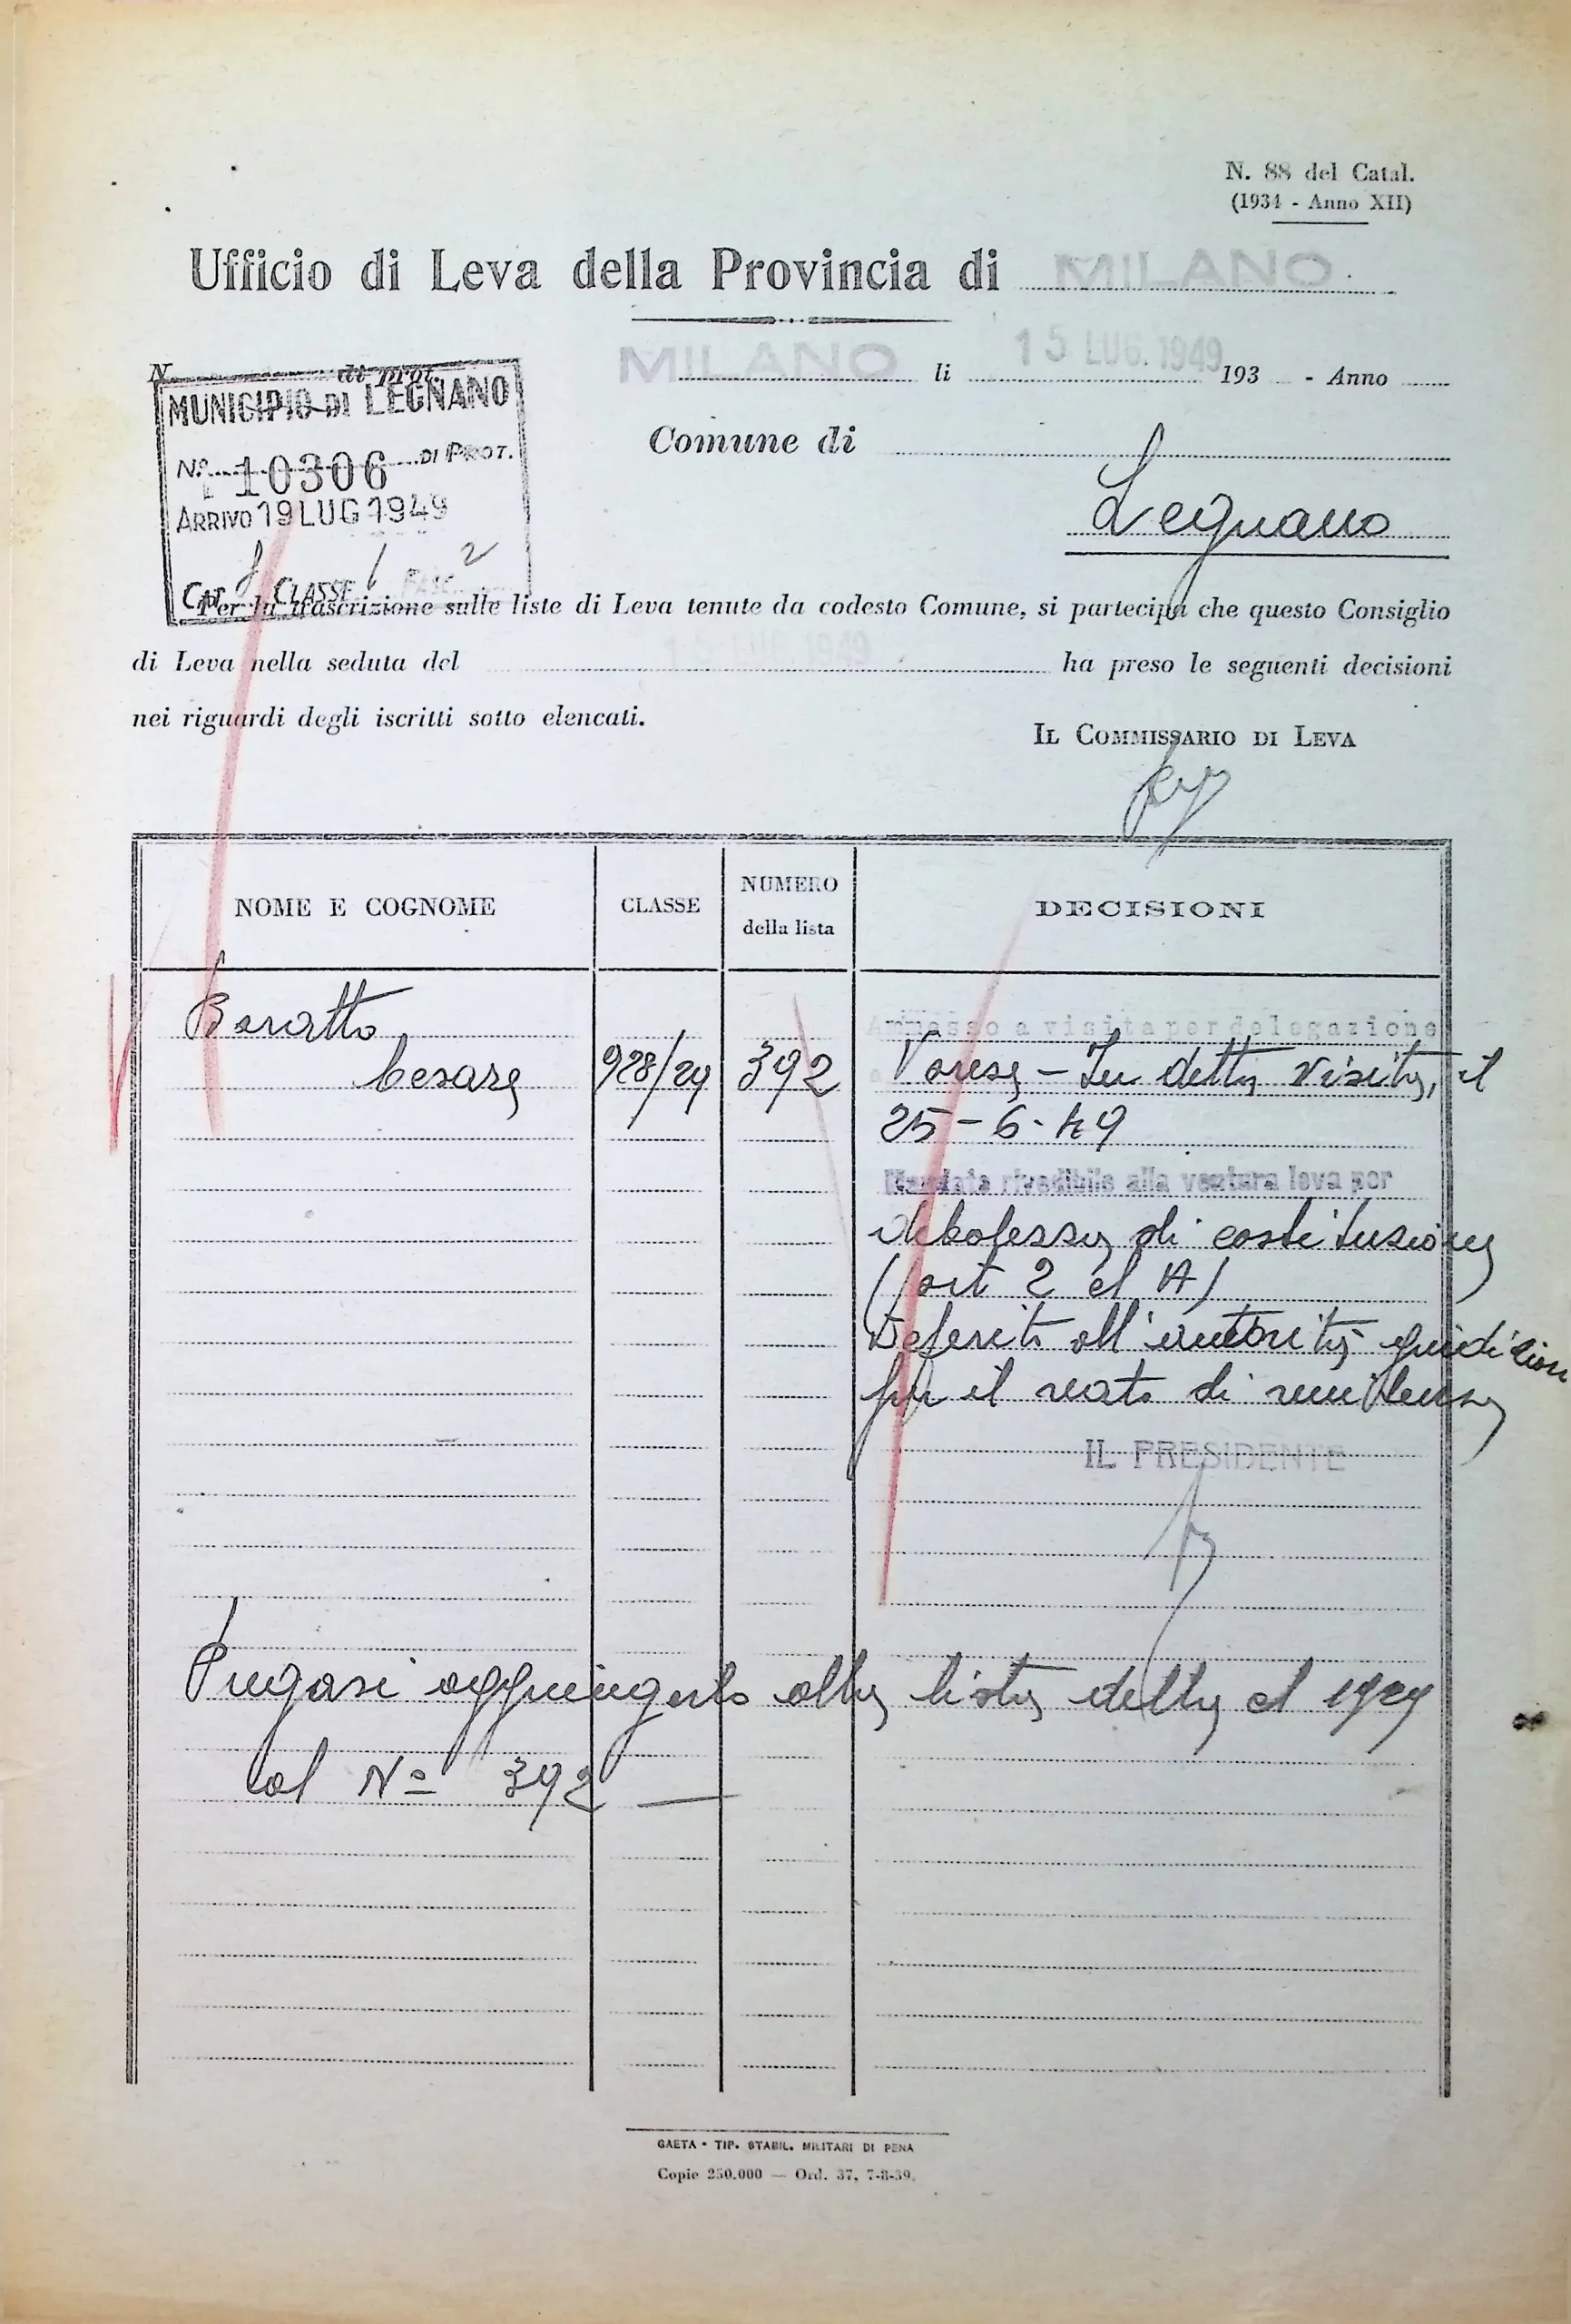 N. 88 del Catal.
(1934 - Anno XII)
Ufficio di Leva della Provincia di MILANO
N. di prot.
MILANO li 15 LUG. 1949 193 - Anno
MUNICIPIO DI LEGNANO
No. 10306 DI PROT.
ARRIVO 19 LUG 1949
CAT. 8 CLASSE 1 FASC. 2
Comune di
Legnano
Per la trascrizione sulle liste di Leva tenute da codesto Comune, si partecipa che questo Consiglio
di Leva nella seduta del 15 LUG 1949 ha preso le seguenti decisioni
nei riguardi degli iscritti sotto elencati.
IL COMMISSARIO DI LEVA
NOME E COGNOME CLASSE NUMERO della lista DECISIONI
Baratto
Cesare 928/29 392
Ammesso a visita per delegazione
Varese - In detta visita, il
25-6-49
Mandato rivedibile alla ventura leva per
debolezza di costituzione
(art 2 el A)
Deferito all'autorità giudiziaria
per il reato di renitenza
IL PRESIDENTE
Pregasi aggiungerlo alla lista della cl 1929
al No 392 —
GAETA - TIP. STABIL. MILITARI DI PENA
Copie 250.000 — Ord. 37, 7-8-39.